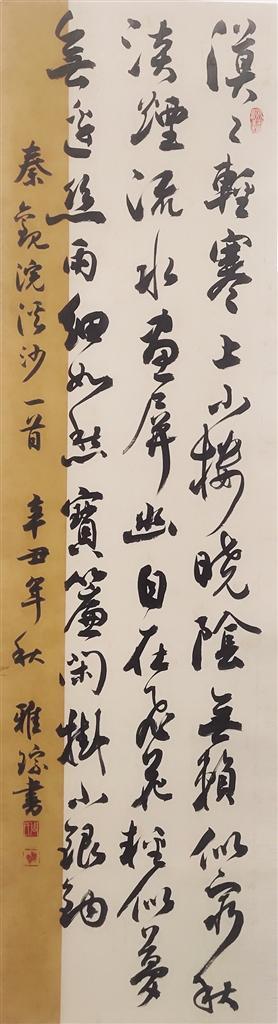 漠々輕寒上小樓曉陰無賴似窮秋
淡煙流水畫屏幽自在飛花輕似夢
無邊絲雨細如愁寶簾閑掛小銀鉤
秦觀浣溪沙一首 辛丑年秋 雅琮書